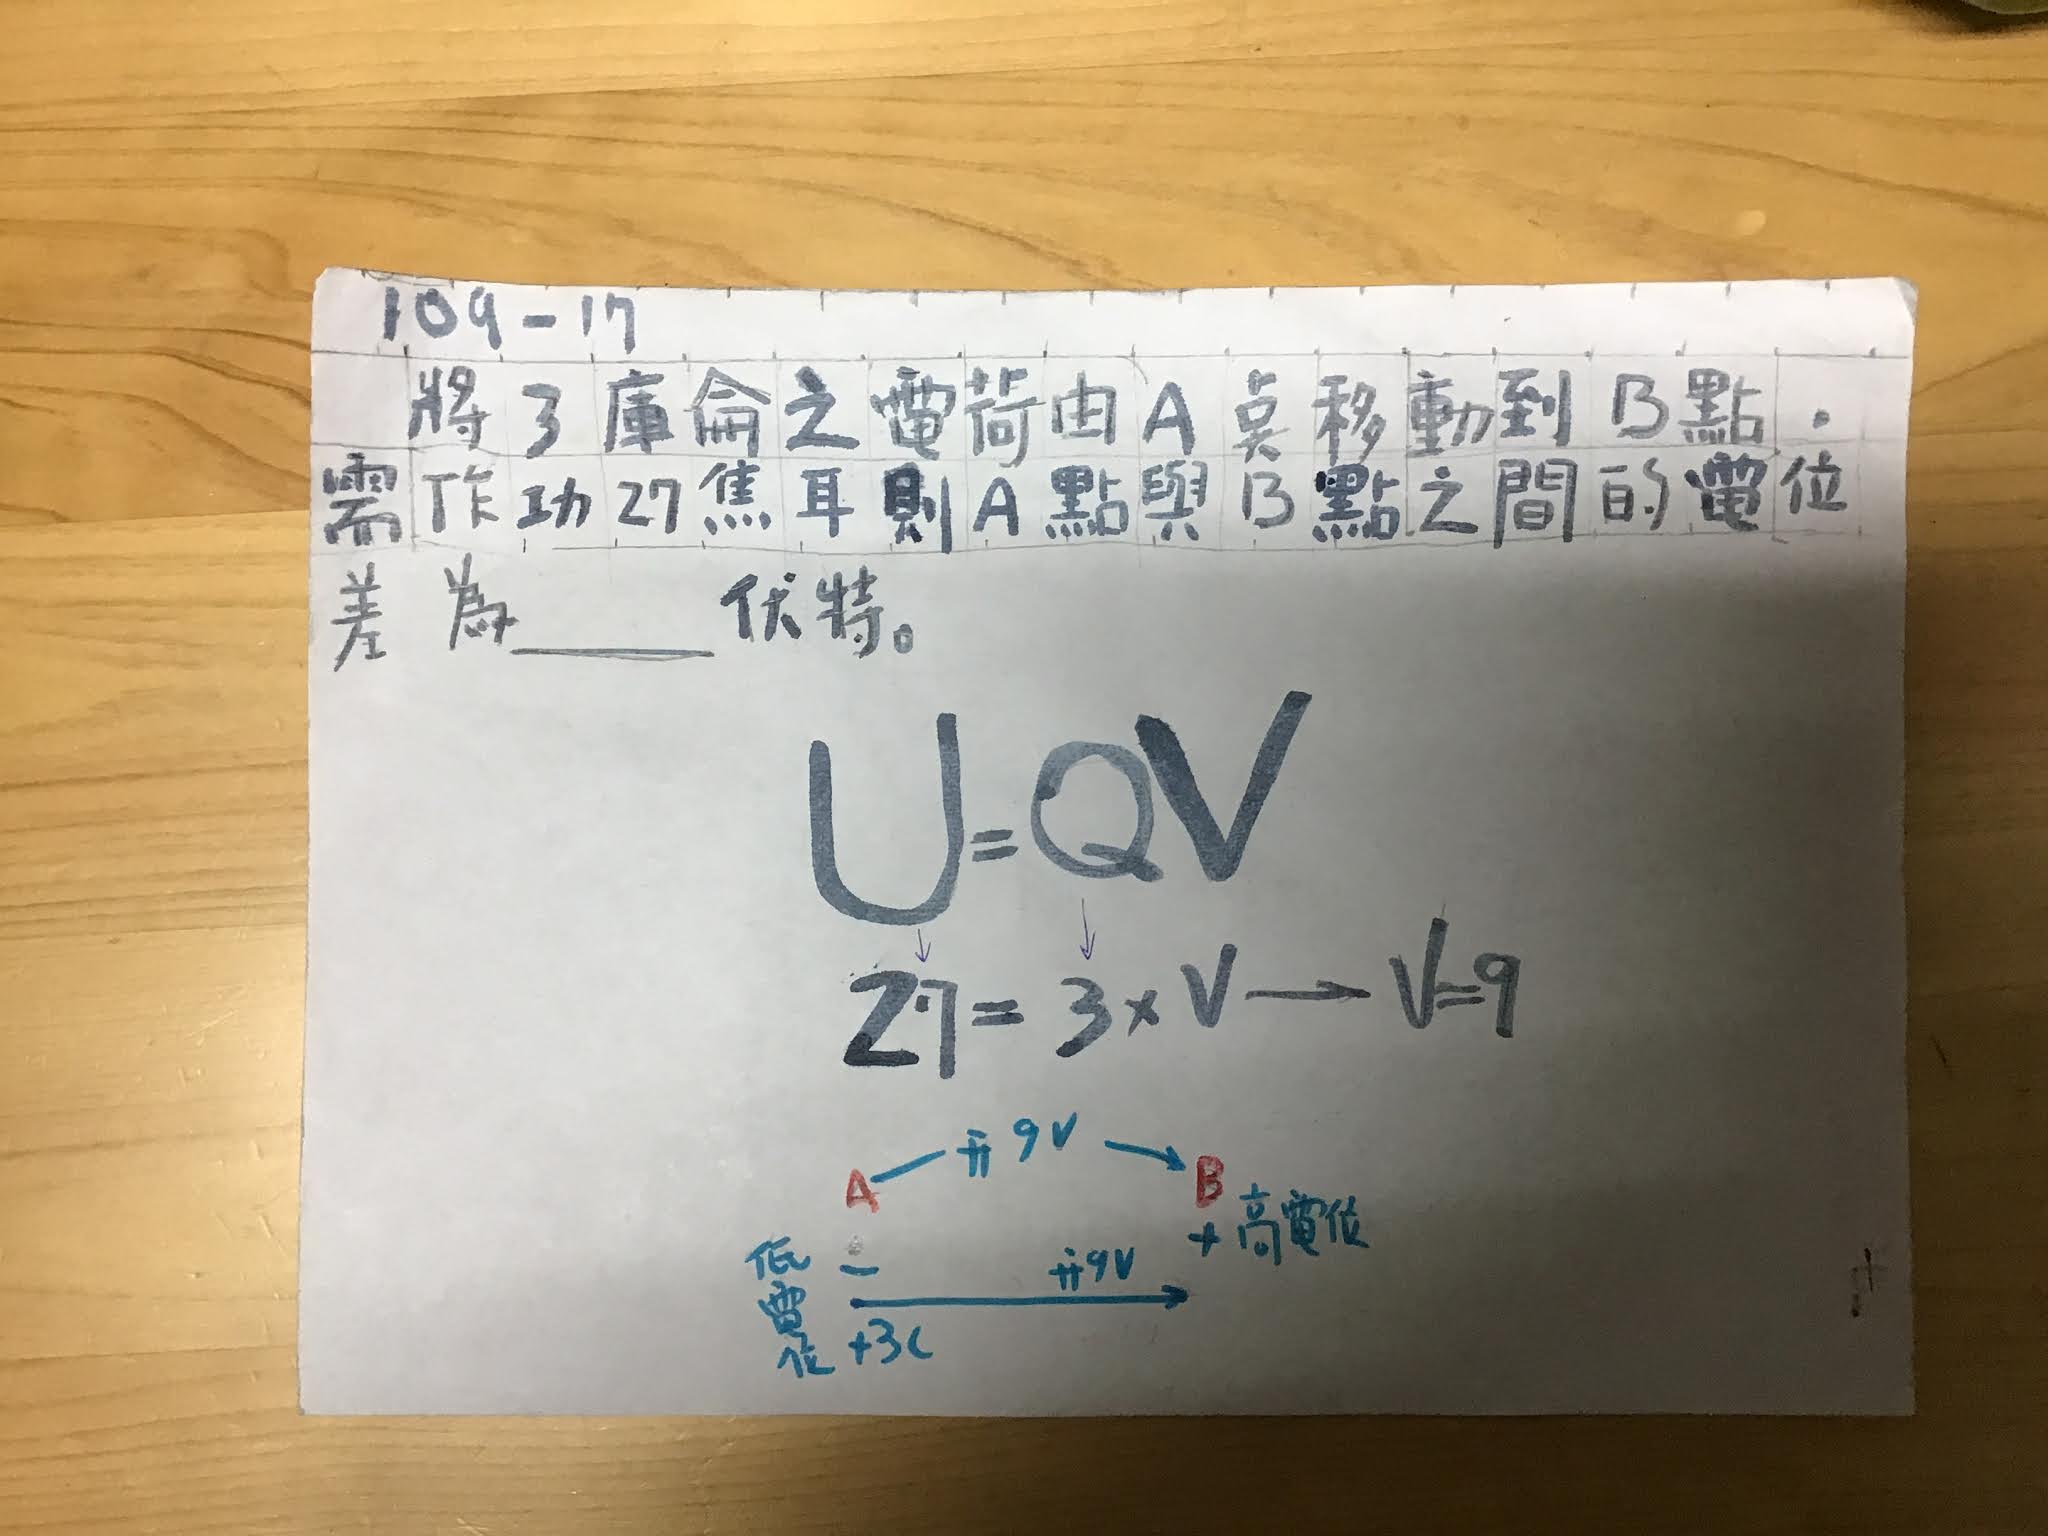 109-17
將3庫侖之電荷由A點移動到B點.
需作功27焦耳則A點與B點之間的電位
差為______伏特。
U=QV
27=3×V→V=9
A 升9V B
+高電位
低電位
-
升9V
+3C